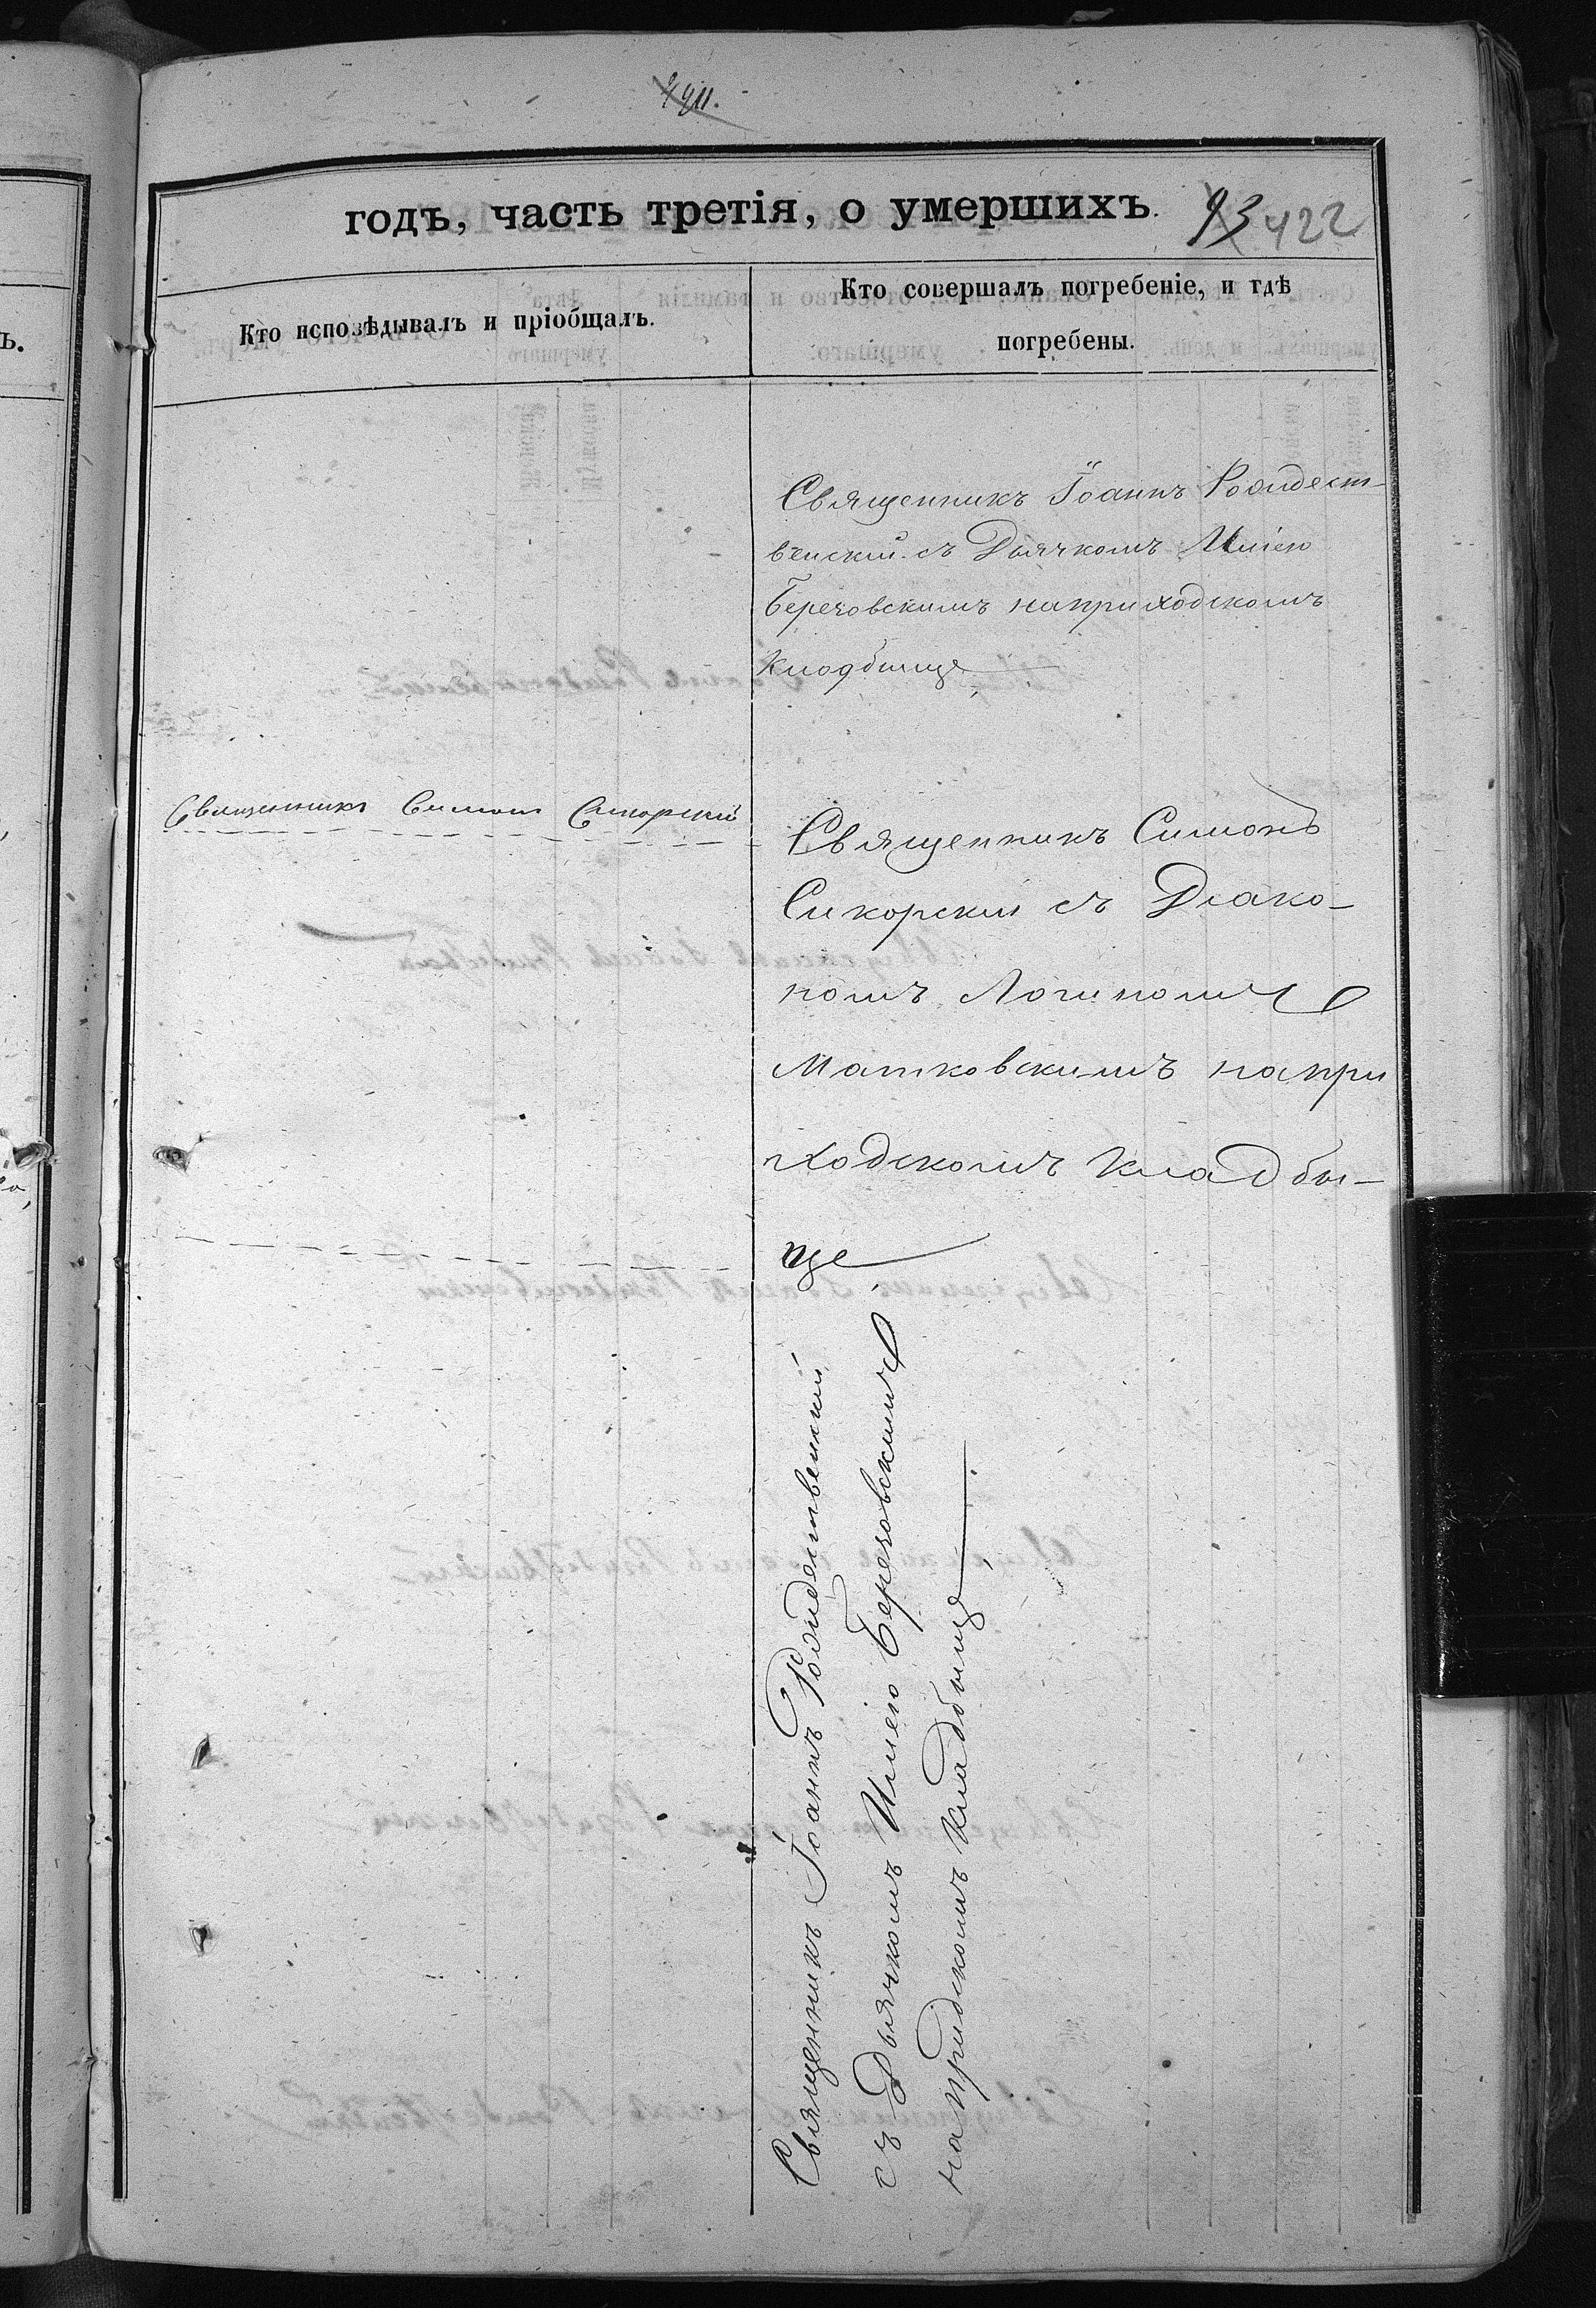 годъ, часть третія, о умершихъ.
93 422
Кто исповѣдывалъ и пріобщалъ.
Кто совершалъ погребеніе, и гдѣ
погребены.
Священникъ Іоаннъ Рождест-
венскій съ Дьячкомъ Иліею
Березовскимъ наприходскомъ
Кладбище
Священникъ Симонъ Сикорскій
Священникъ Симонъ
Сикорскій съ Діако-
номъ Логиномъ
Матковскимъ напри
ходскомъ Кладбы-
ще
Священникъ Іоаннъ Рождественскій
съ Дьячкомъ Иліею Березовскимъ
на придскомъ Кладбыще